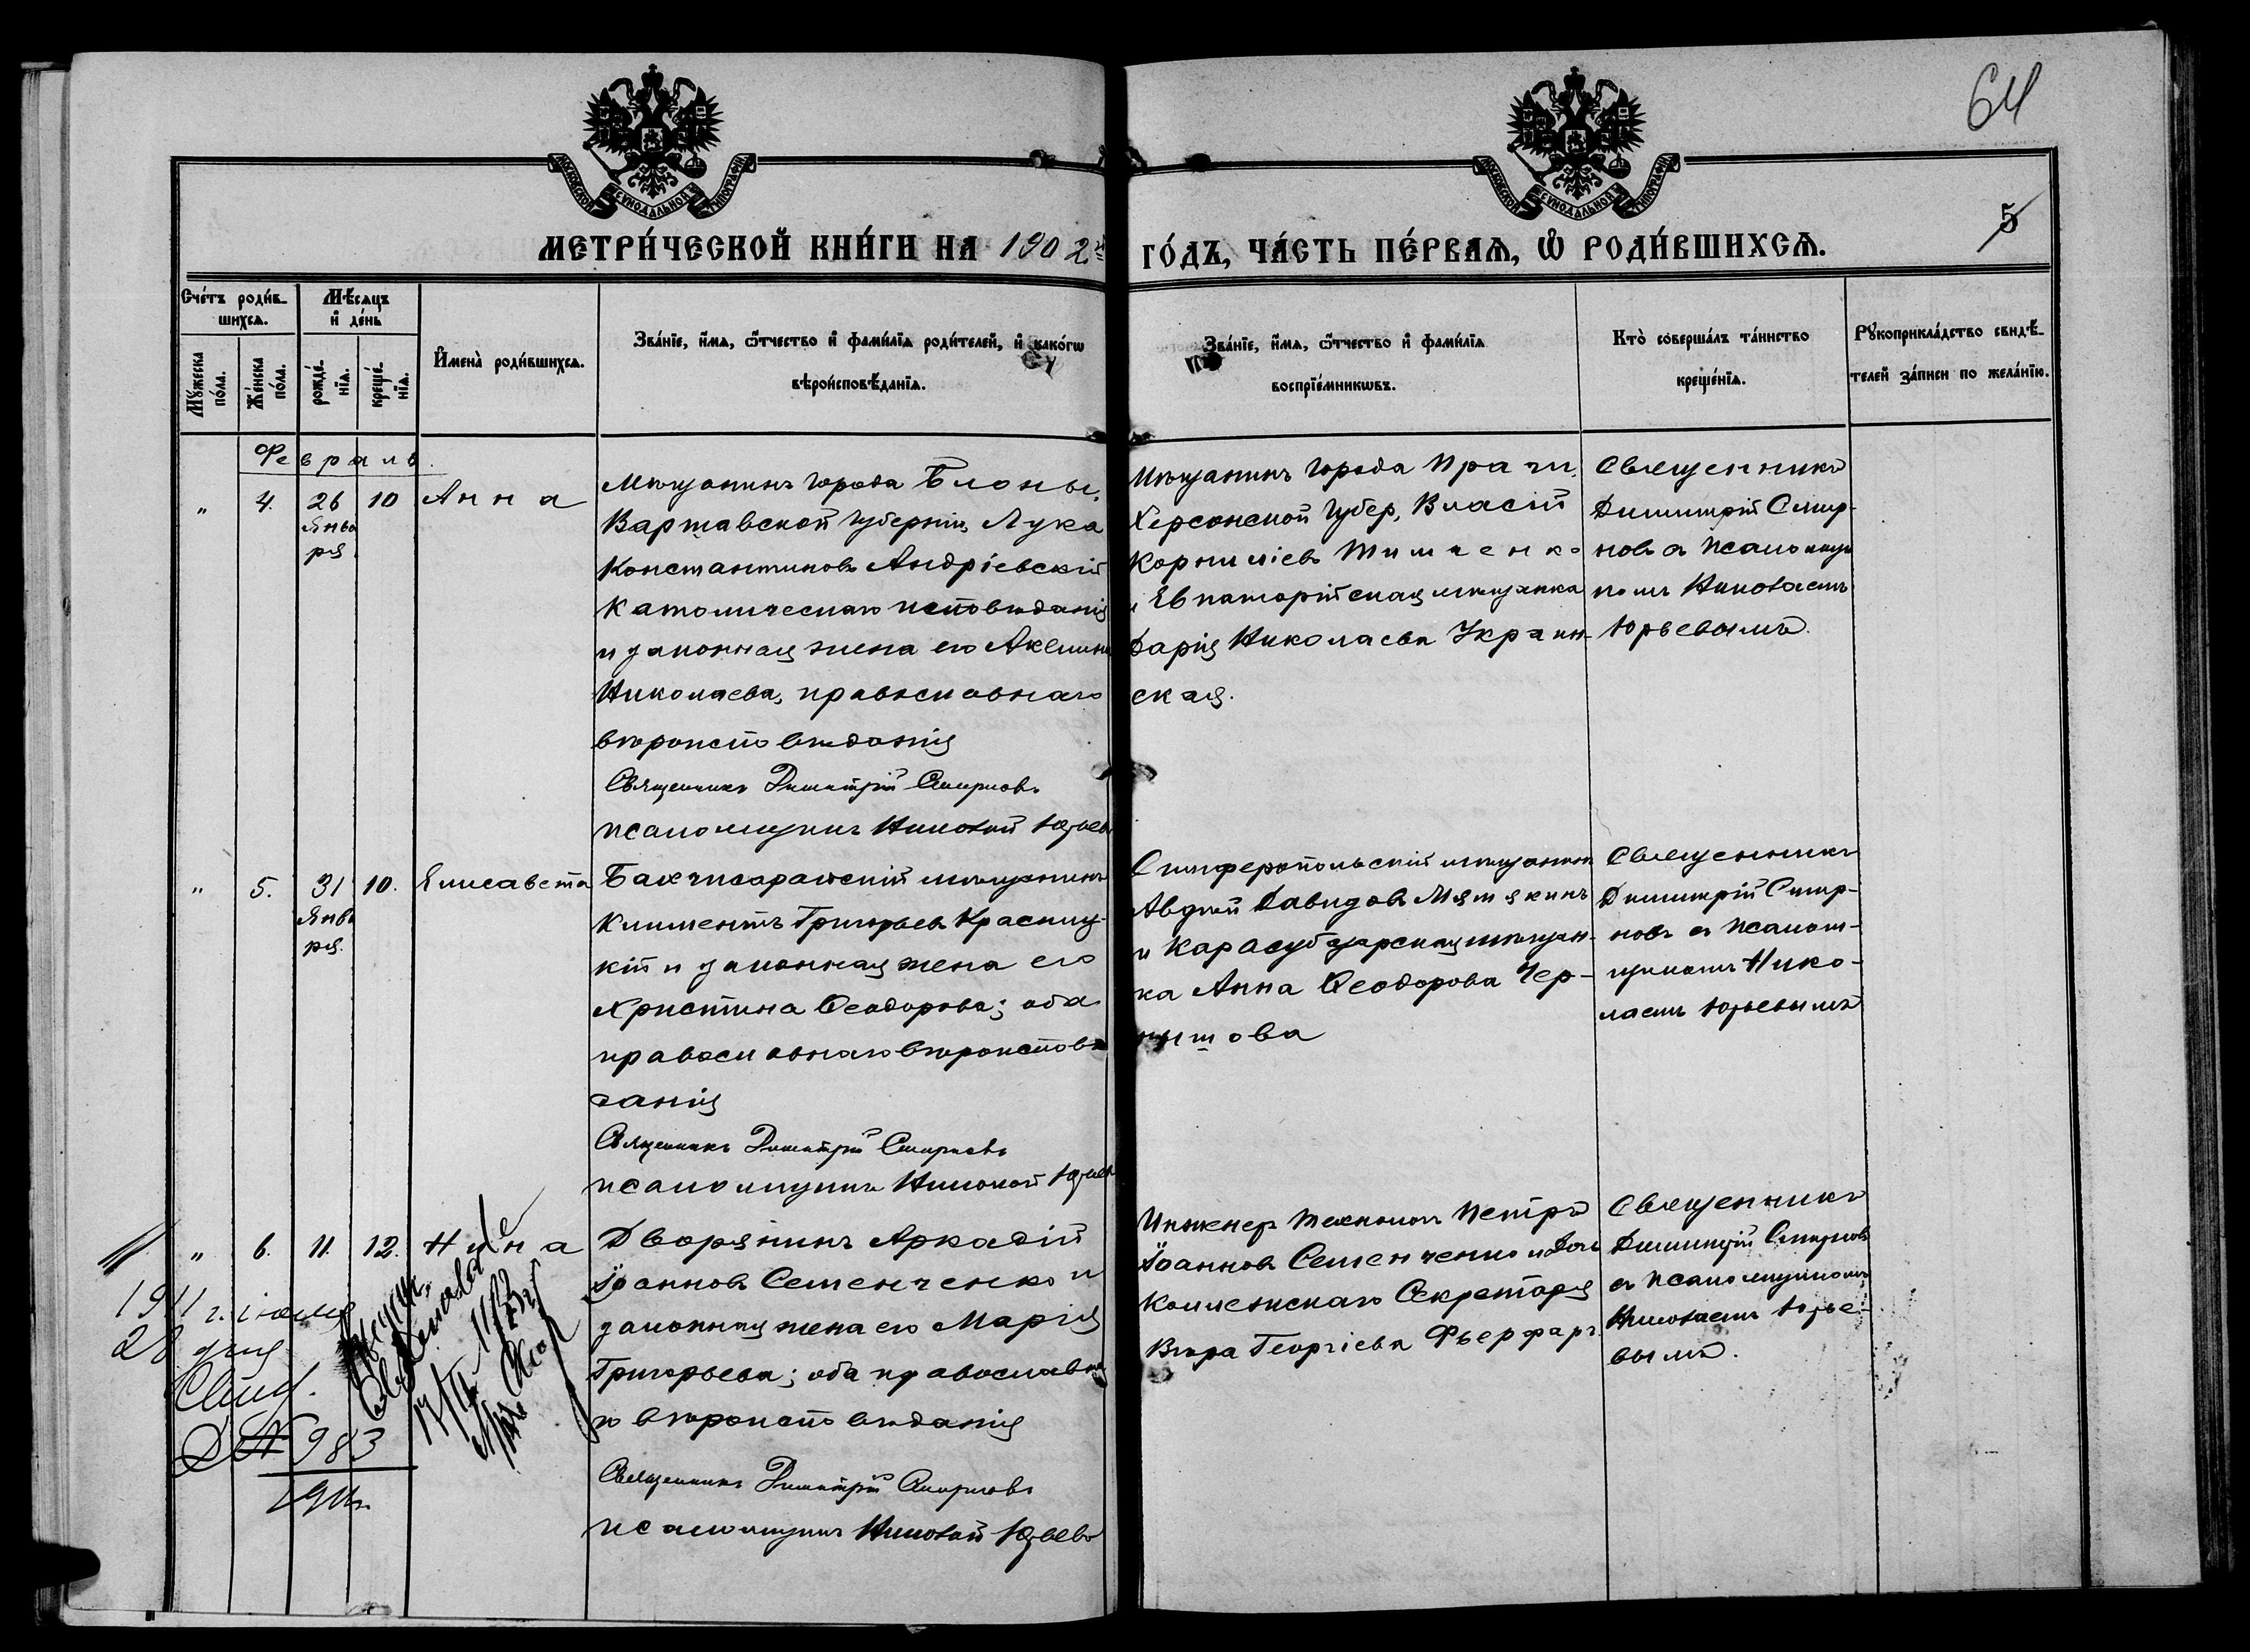 64
МОСКОВСКОЙ СѴНОДАЛЬНОЙ ТИПОГРАФІИ
МОСКОВСКОЙ СѴНОДАЛЬНОЙ ТИПОГРАФІИ
5
МЕТРИ́ЧЕСКОЙ КНИ́ГИ НА 1902 й
ГО́ДЪ, ЧА́СТЬ ПЕ́РВАѦ, Ѿ РОДИ́ВШИХСѦ.
Счéтъ роди́в-
шихсѧ.
Мꙋ́жеска по́ла.
Же́нска по́ла.
Мѣ́сѧцъ
и҆ де́нь
рожде́-
нїѧ.
креще́-
нїѧ.
И҆мена̀ роди́вшихсѧ.
Зва́нїе, и҆́мѧ, ѻ҆́тчество и҆ фами́лїѧ роди́телей, и҆ како́гѡ
вѣроисповѣ́данїѧ.
Зва́нїе, и҆́мѧ, ѻ҆́тчество и҆ фами́лїѧ
воспрїе́мникѡвъ.
Кто̀ соверша́лъ та́инство
креще́нїѧ.
Рꙋкоприкла́дство свидѣ́-
телей за́писи по жела́нїю.
Февраль.
" 4. 26 10 Анна
Янва
ря
Мѣщанинъ города Блоны,
Варшавской губерніи, Лука
Константиновъ Андріевскій
католическаго исповѣданія
и законная жена его Аксинія
Николаева, православнаго
вѣроисповѣданія
Священникъ Димитрій Смирновъ
псаломщикъ Николай Юрьевъ
Мѣщанинъ города
Херсонской губер, Власій
Корниліевъ Тимченко
и Евпаторійская мѣщанка
Дарія Николаева Украин-
ская.
Священникъ
Димитрій Смир-
новъ а псаломщи
комъ Николаемъ
Юрьевымъ.
" 5. 31 10. Елисавета
Янва
ря.
Бахчисарайскій мѣщанинъ
Климентъ Григорьевъ Красниц-
кій и законная жена его
Христина Ѳеодорова; оба
православнаго вѣроисповѣ
данія
Священникъ Димитрій Смирновъ
псаломщикъ Николай Юрьевъ
Симферопольскій мѣщанинъ
Авдій Давидовъ Мятякинъ
и Карасубазарская мѣщан-
ка Анна Ѳеодорова Чер-
нышова
Священникъ
Димитрій Смир-
новъ съ псалом-
щикомъ Нико-
лаемъ Юрьевымъ
" 6. 11. 12. Нина
Дворянинъ Аркадій
Іоанновъ Семенченко и
законная жена его Марія
Григорьева; оба православна
го вѣроисповѣданія
Священникъ Димитрій Смирновъ
псаломщикъ Николай Юрьевъ
Инженеръ технологъ Петръ
Іоанновъ Семенченко и дочь
Коллежскаго Секретаря
Вѣра Георгіева Фьерфаръ
Священникъ
Димитрій Смирновъ
съ псаломщикомъ
Николаемъ Юрье-
вымъ.
1911 г. іюля
28 дня
983
1911